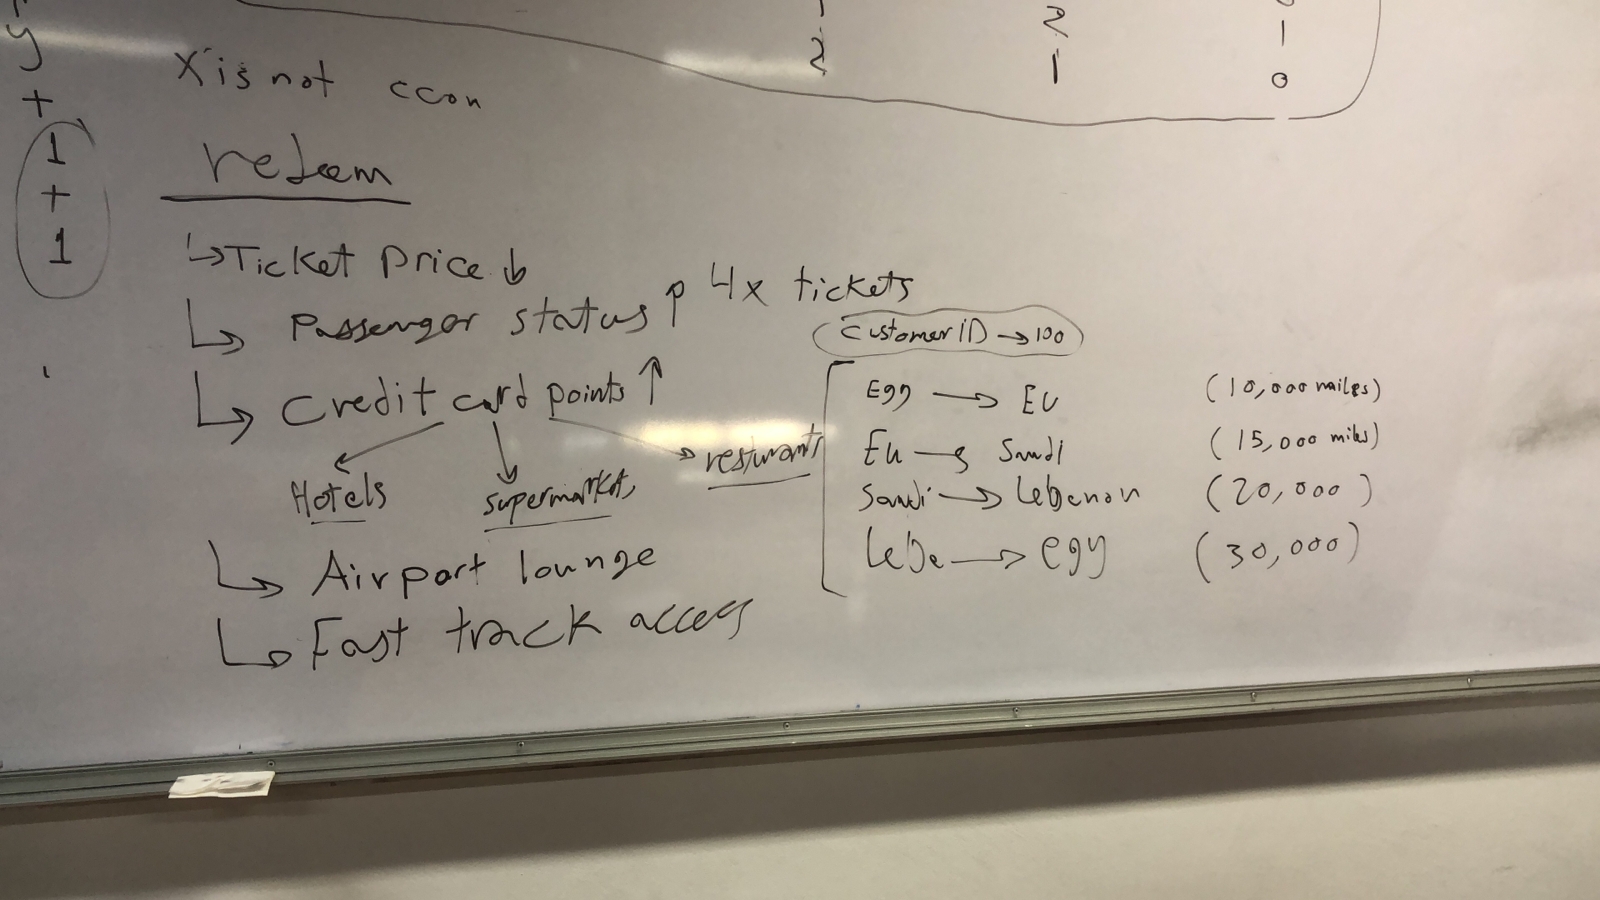 y
+
1
+
1
2
2
1
1
0
X is not ccon
redeem
↳ Ticket price ↓
↳ Passenger status ↑ 4x tickets
↳ credit card points ↑
Hotels supermarkets resturants
↳ Airport lounge
↳ Fast track access
CustomerID → 100
Egy → EU (10,000 miles)
EU → Saudi (15,000 miles)
Saudi → Lebenon (20,000)
Lebe → egy (30,000)